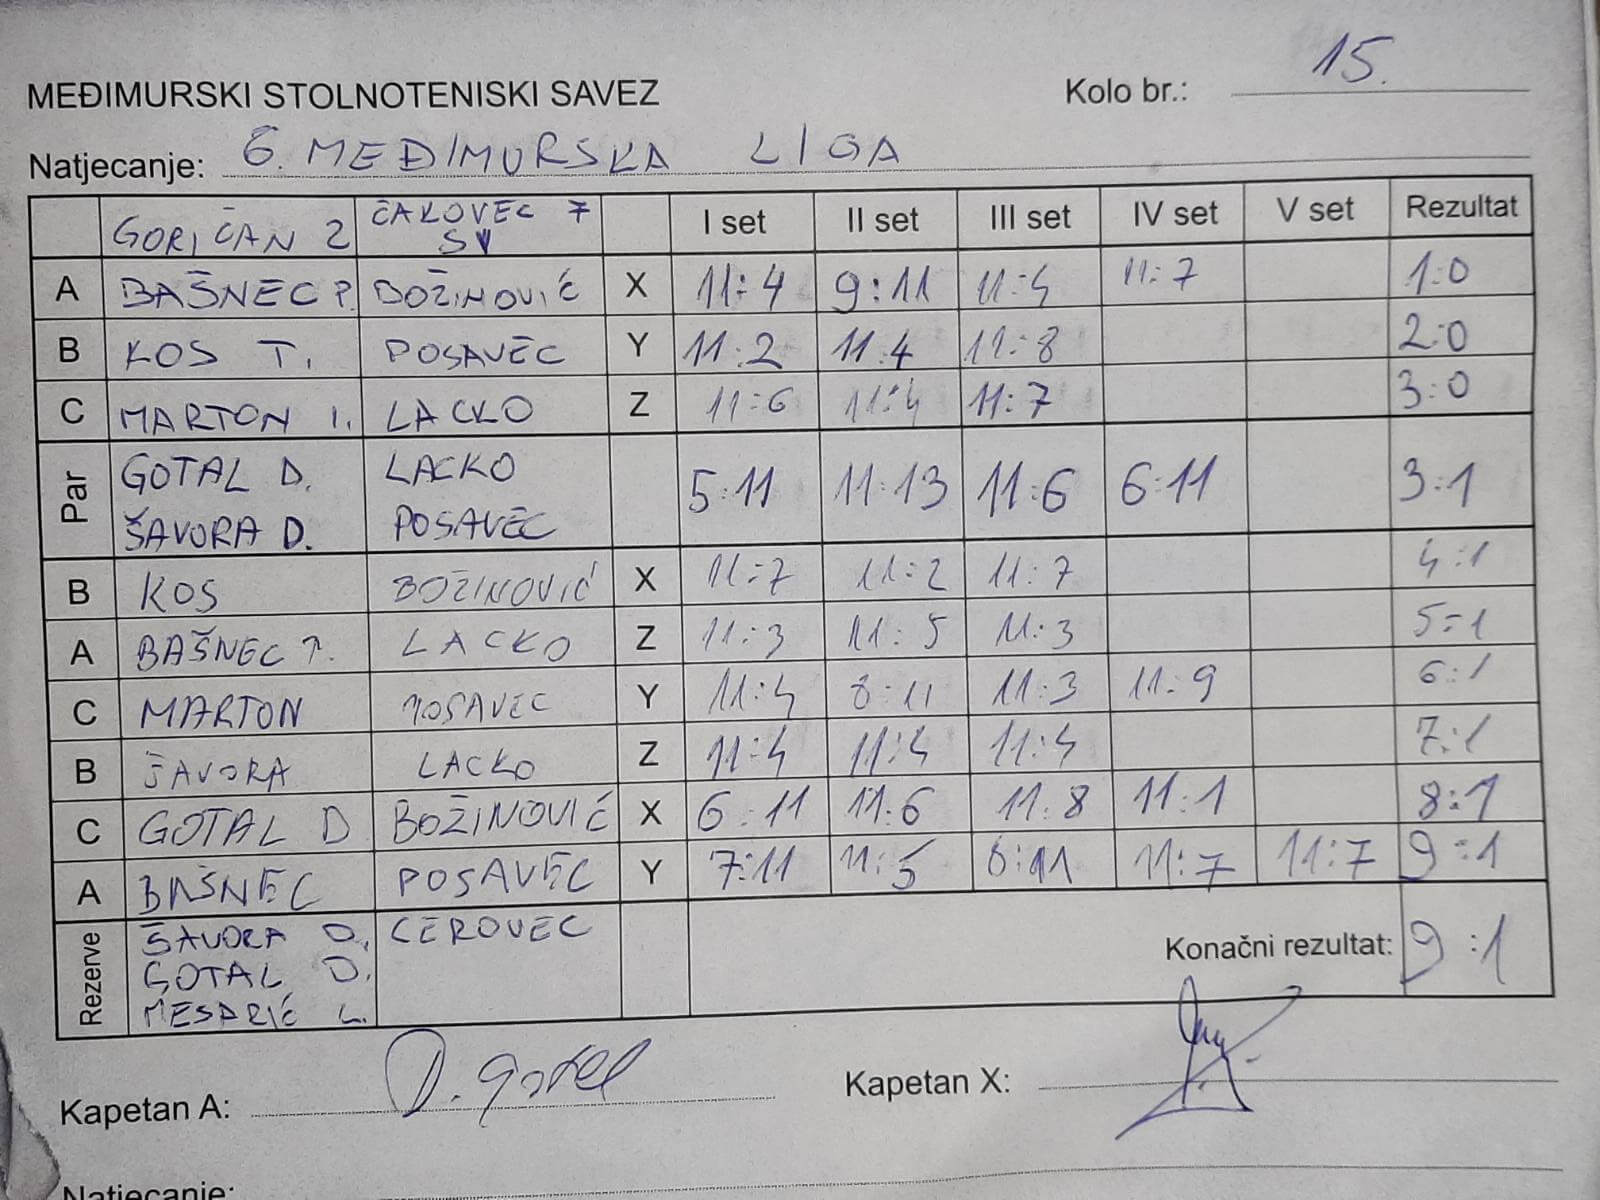 MEĐIMURSKI STOLNOTENISKI SAVEZ Kolo br.: 15.
Natjecanje: 6. MEĐIMURSKA LIGA
GORIČAN 2 ČAKOVEC 7 SV I set II set III set IV set V set Rezultat
A BAŠNEC P. BOŽINOVIĆ X 11:4 9:11 11:4 11:7 1:0
B KOS T. POSAVEC Y 11:2 11:4 11:8 2:0
C MARTON I. LACKO Z 11:6 11:4 11:7 3:0
Par GOTAL D. LACKO 5:11 11:13 11:6 6:11 3:1
ŠAVORA D. POSAVEC
B KOS BOŽINOVIĆ X 11:7 11:2 11:7 4:1
A BAŠNEC P. LACKO Z 11:3 11:5 11:3 5:1
C MARTON POSAVEC Y 11:4 8:11 11:3 11:9 6:1
B ŠAVORA LACKO Z 11:4 11:4 11:4 7:1
C GOTAL D BOŽINOVIĆ X 6:11 11:6 11:8 11:1 8:1
A BAŠNEC POSAVEC Y 7:11 11:5 8:11 11:7 11:7 9:1
Rezerve ŠAVORA D. CEROVEC Konačni rezultat: 9:1
GOTAL D.
MESARIĆ L.
Kapetan A: D. Gotal Kapetan X:
Natjecanje: